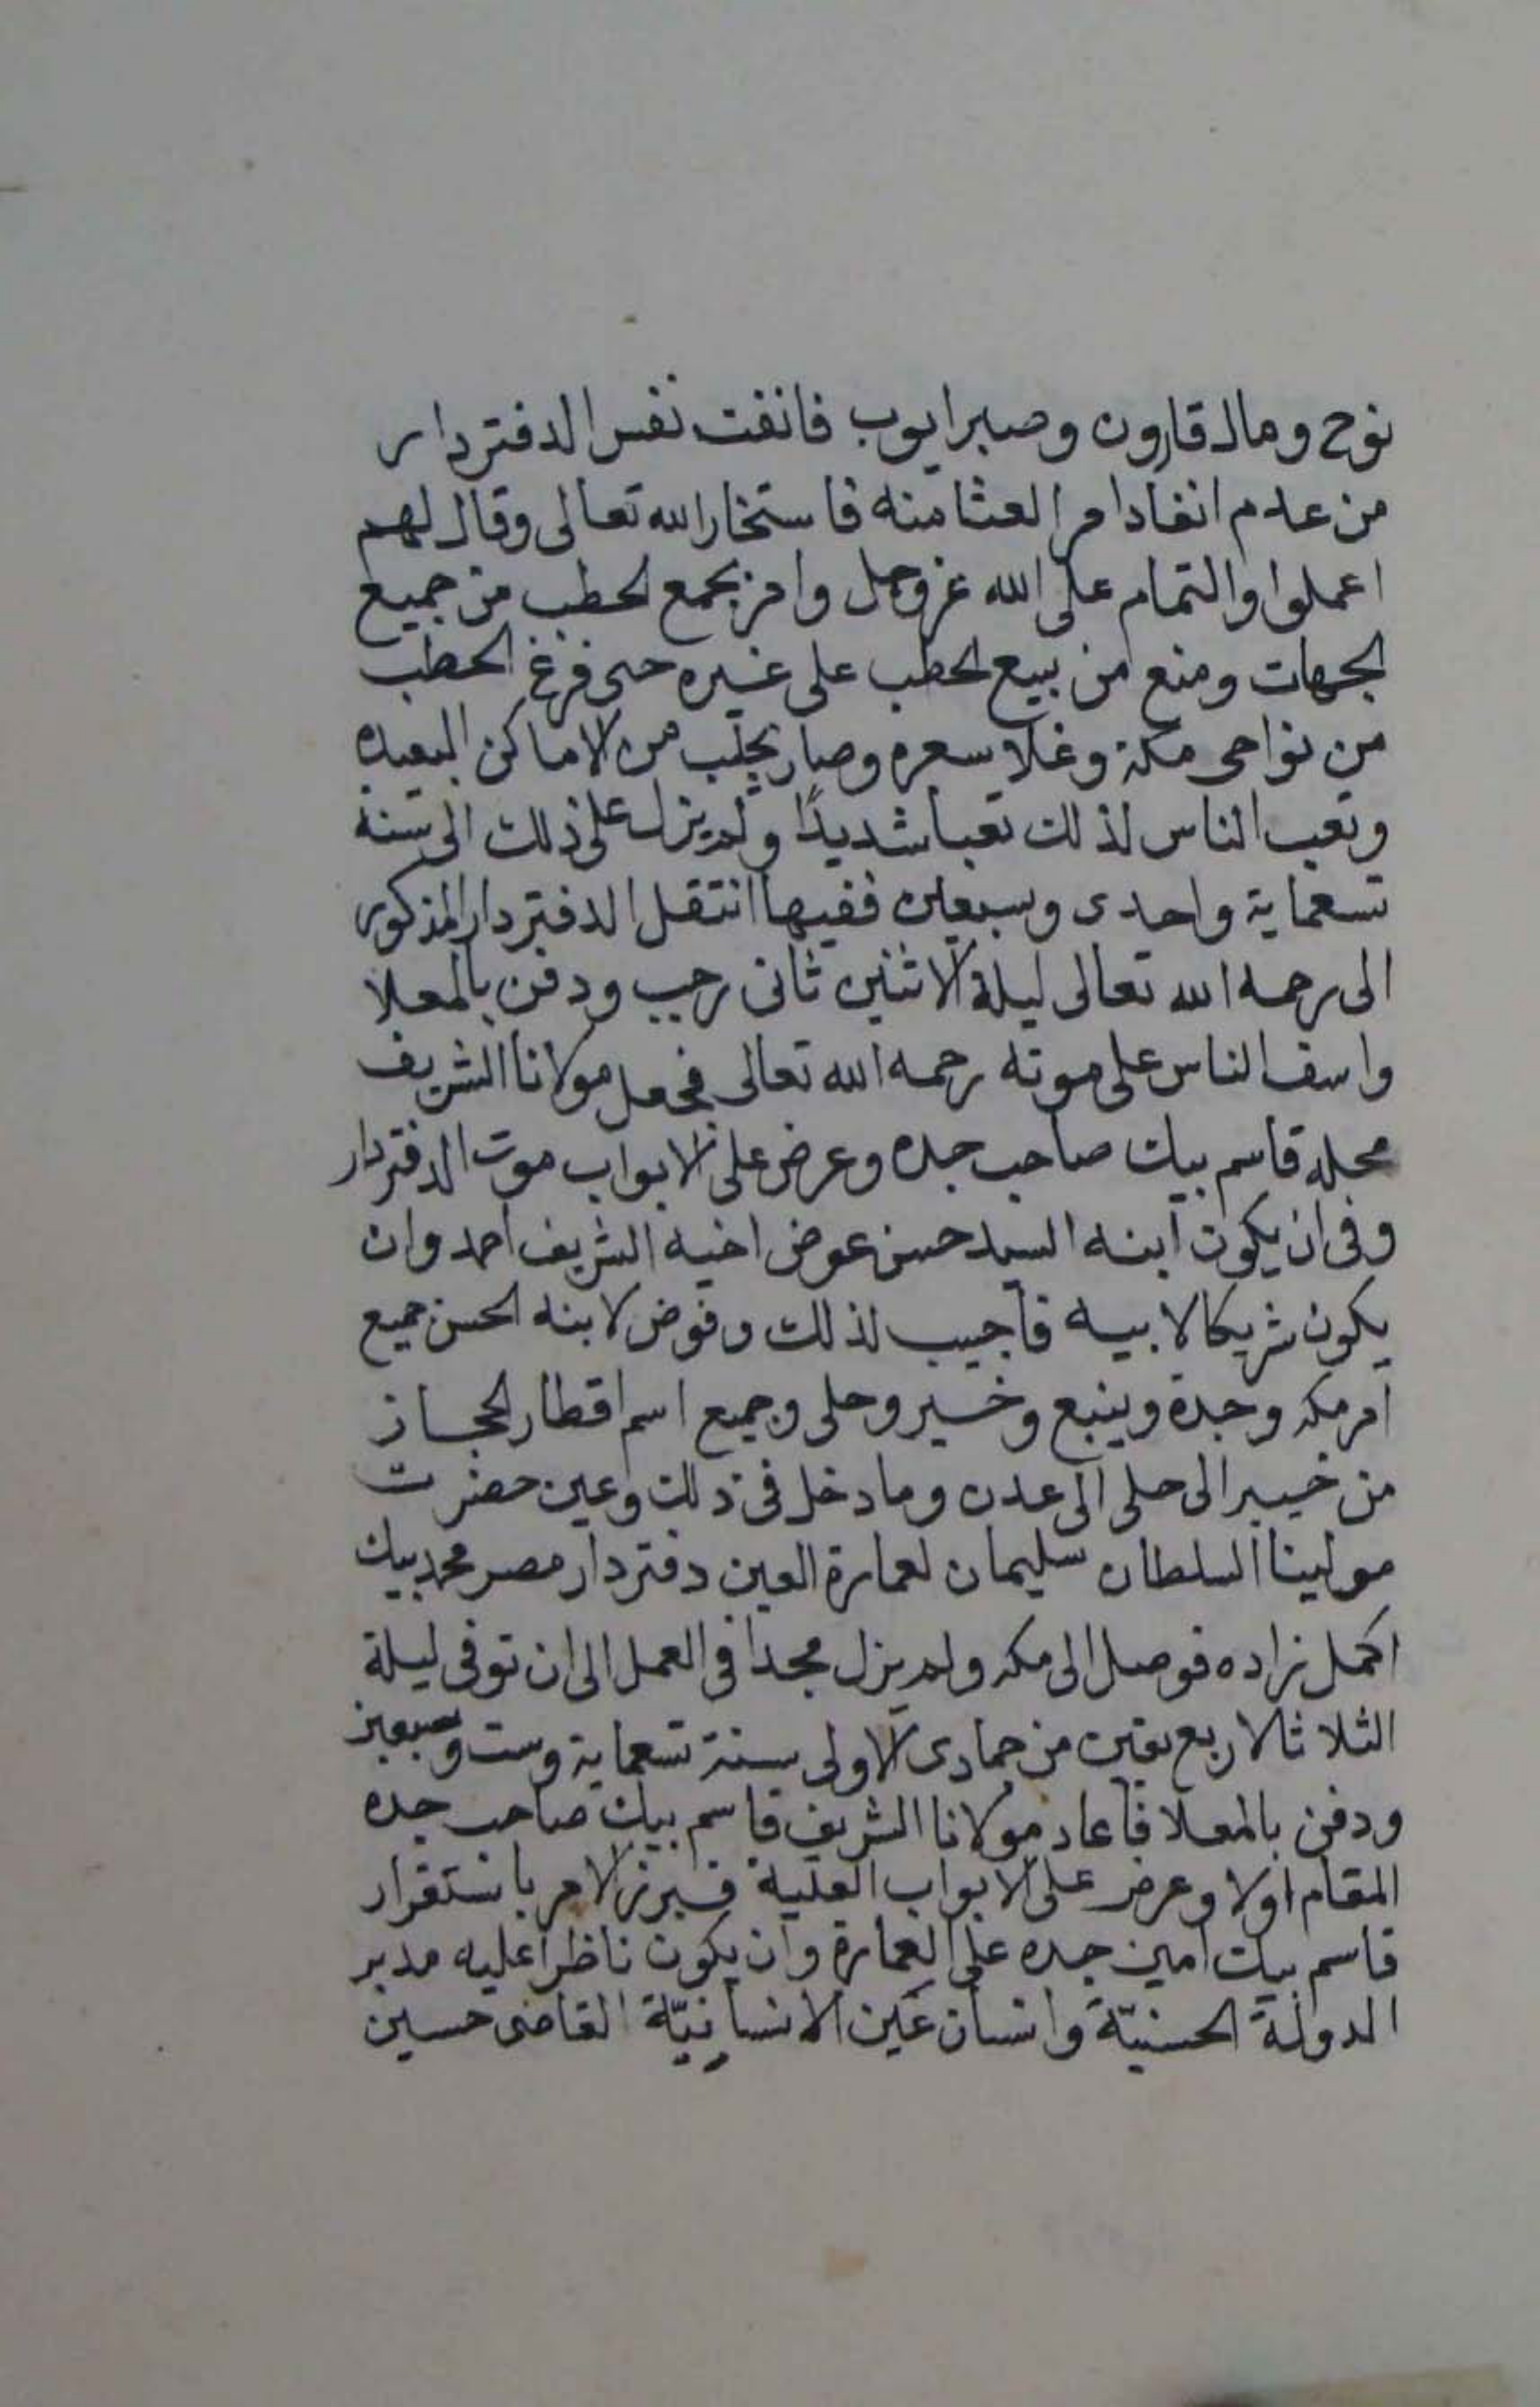 نوح ومال قارون وصبر ايوب فانفت نفس الدفتردار
من عدم انفاد امر العثامنه فاستخار الله تعالى وقال لهم
اعملوا والتمام على الله عز وجل وامر بجمع الحطب من جميع
الجهات ومنع من بيع الحطب على غيره حتى فرغ الحطب
من نواحى مكة وغلا سعره وصار يجلب من الاماكن البعيده
وتعب الناس لذلك تعبا شديدًا ولم يزل على ذلك الى سنه
تسعماية واحدى وسبعين ففيها انتقل الدفتردار المذكور
الى رحمه الله تعالى ليلة الاثنين ثانى رجب ودفن بالمعلا
واسف الناس على موته رحمه الله تعالى فجعل مولانا الشريف
محله قاسم بيك صاحب جده وعرض على الابواب موت الدفتردار
وفى ان يكون ابنه السيد حسن عوض اخيه الشريف احمد وان
يكون شريكا لابيه فاجيب لذلك وفوض لابنه الحسن جميع
امر مكه وجدة وينبع وخيبر وحلى وجميع اسم اقطار الحجاز
من خيبر الى حلى الى عدن وما دخل فى ذلك وعين حضرت
مولينا السلطان سليمان لعمارة العين دفتردار مصر محمد بيك
اكمل زاده فوصل الى مكه ولم يزل مجدا فى العمل الى ان توفى ليلة
الثلاثا لاربع بقين من جمادى الاولى سنة تسعماية وست وسبعين
ودفن بالمعلا فاعاد مولانا الشريف قاسم بيك صاحب جده
المقام اولا وعرض على الابواب العلية فبرز الامر باستقرار
قاسم بيك امين جده على العمارة وان يكون ناظرا عليه مدبر
الدولة الحسنيّة وانسان عَين الانسانيّة القاضى حسين